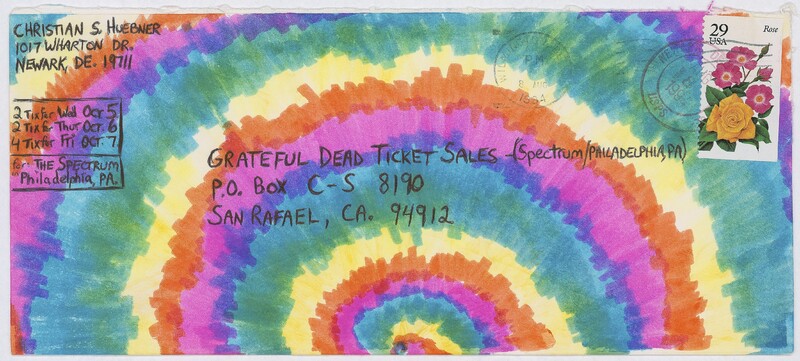 CHRISTIAN S. HUEBNER
1017 WHARTON DR.
NEWARK, DE. 19711
2 Tix for Wed Oct 5
2 Tix for Thur Oct. 6
4 Tix for Fri Oct. 7
for: THE SPECTRUM
Philadelphia, PA.
GRATEFUL DEAD TICKET SALES -(Spectrum/PHILADELPHIA, PA)
P.O. BOX C-S 8190
SAN RAFAEL, CA. 94912
29
USA
Rose
PM
1994